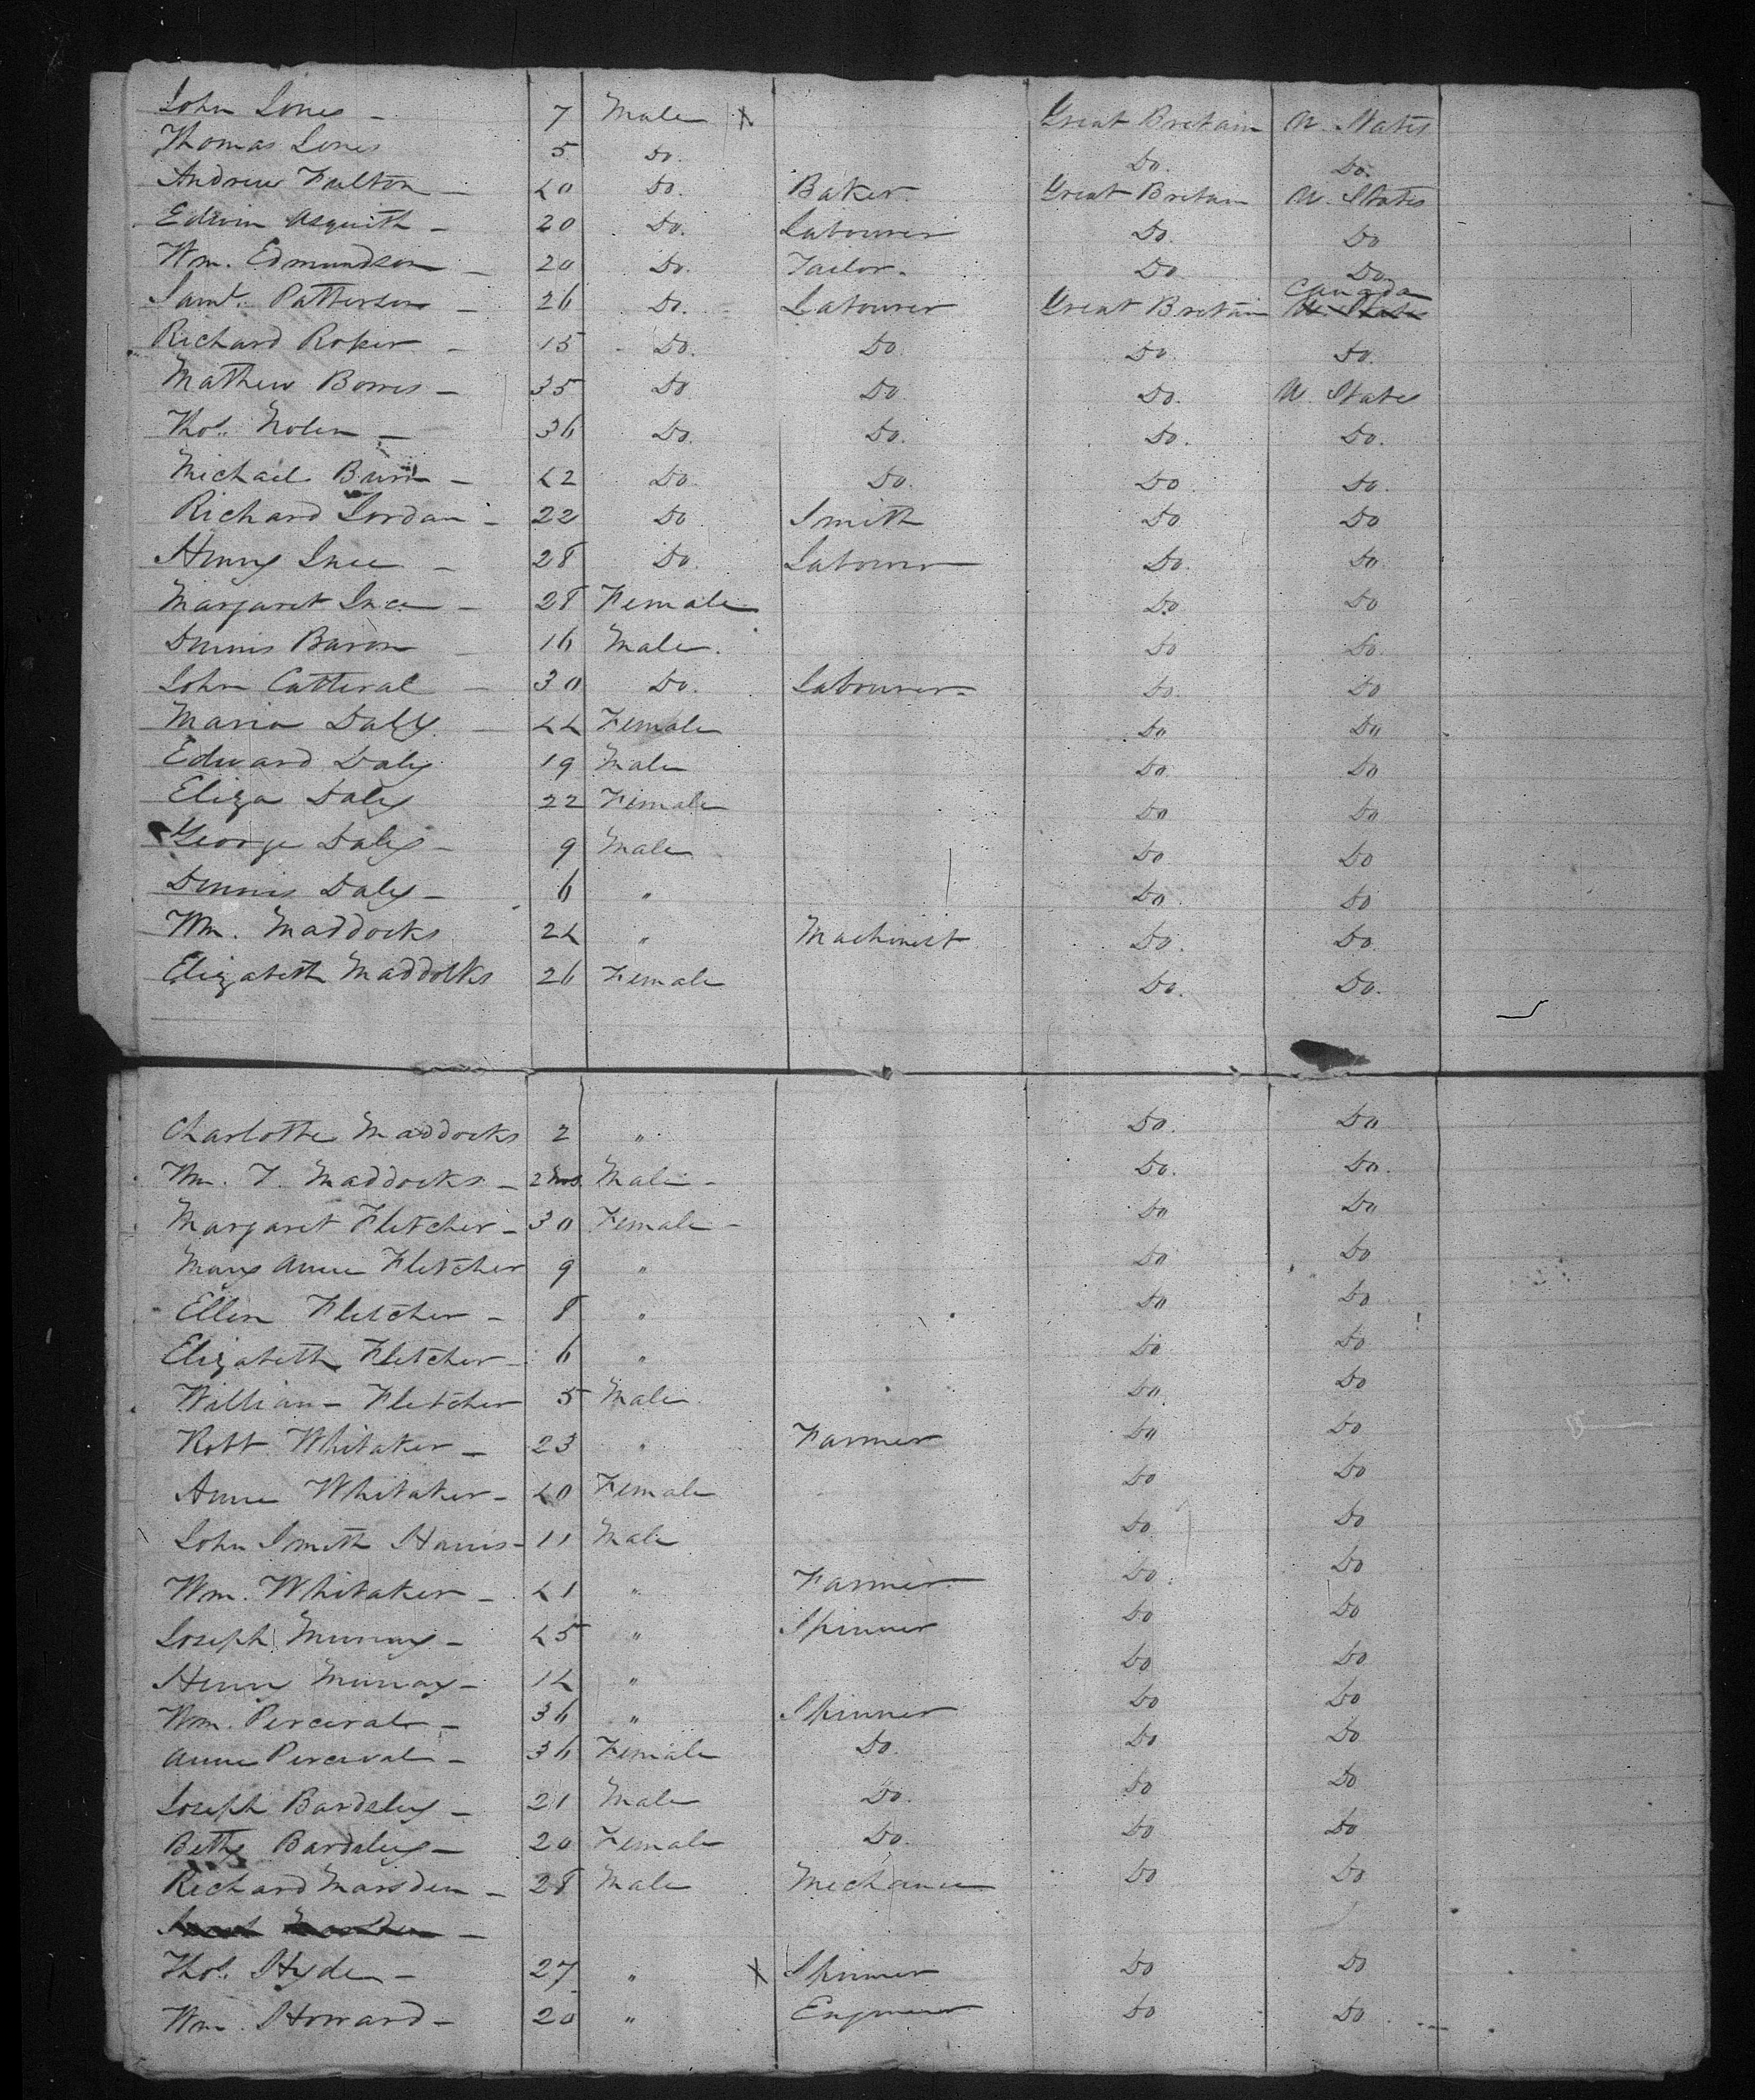 John Jones - 7 Male X Great Britain U. States
Thomas Jones 5 Do. Do. Do.
Andrew Fulton - 40 Do. Baker Great Britain U. States
Edwin Asquith - 20 Do. Labourer Do. Do
Wm. Edmundson - 20 Do. Tailor. Do Do
Saml. Patterson - 26 Do. Labourer Great Britain Canada U. States
Richard Roper - 15 Do. Do. Do. Do.
Mathew Bowes - 35 Do. Do. Do. U. States
Thos. Nolen - 36 Do. Do. Do. Do.
Michael - 42 Do. Do. Do. Do.
Richard Jordan - 22 Do Smith Do Do
Henry Ince - 28 Do. Labourer Do. Do
Margaret Ince - 28 Female Do Do
Dennis Baron - 16 Male. Do Do.
John Catteral - 30 Do. Labourer - Do. Do
Maria Daly. - 44 Female Do Do
Edward Daly 19 Male Do. Do
Eliza Daly 22 Female Do Do
George Daly - 9 Male Do Do
Dennis Daly - 6 " Do. Do
Wm. Maddocks 24 " Machinest Do. Do.
Elizabeth Maddocks 26 Female Do. Do.
Charlotte Maddocks 2 " Do. Do
Wm. T. Maddocks - 2 Mos. Male - Do. Do.
Margaret Fletcher - 30 Female - Do Do
Mary Anne Fletcher 9 " Do Do
Ellen Fletcher - 8 " Do Do
Elizabeth Fletcher - 6 " Do Do
William - Fletcher 5 Male Do Do
Robt Whitaker - 23 " Farmer Do Do
Anne Whitaker - 40 Female Do Do
John Smith Harris - 11 Male Do Do
Wm. Whitaker - 41 " Farmer Do. Do
Joseph Murray - 45 " Spinner Do Do
Henry Murray - 14 " Do Do
Wm. Percival - 36 " Spinner Do Do
Anne Percival - 36 Female Do. Do Do
Joseph Bardsley - 21 Male Do. Do Do
Betty Bardsley - 20 Female Do. Do Do
Richard Marsden - 28 Male Mechanic Do Do
Marsden -
Thos. Hyde - 27 " X Spinner Do Do
Wm. Howard - 25 " Engineer Do Do.